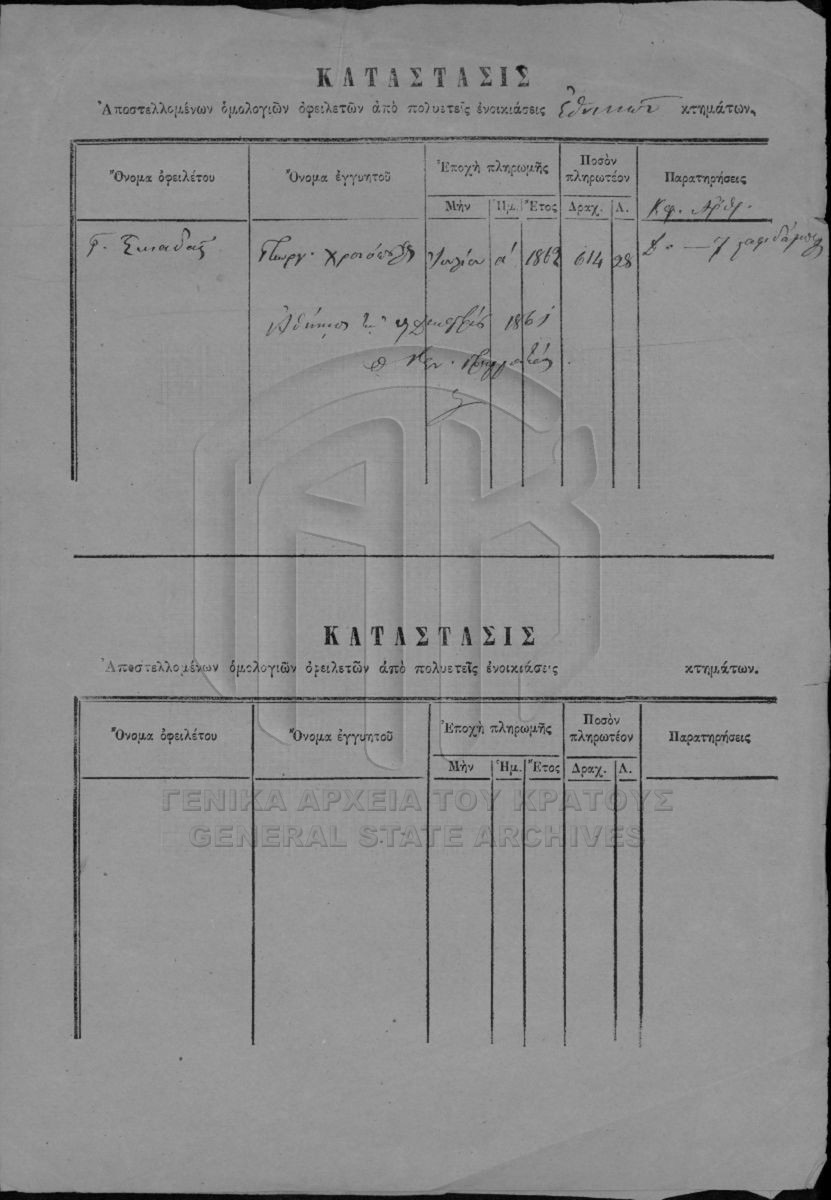 ΚΑΤΑΣΤΑΣΙΣ
Ἀποστελλομένων ὁμολογιῶν ὀφειλετῶν ἀπὸ πολυετεῖς ἐνοικιάσεις ἐθνικῶν κτημάτων.
Ὄνομα ὀφειλέτου Ὄνομα ἐγγυητοῦ Ἐποχὴ πληρωμῆς Ποσὸν πληρωτέον Παρατηρήσεις
Μὴν Ἡμ. Ἔτος Δραχ. Λ.
Γ. Σκιαδᾶς Γεωργ. Ἰουλίου α΄ 1862 614 28
1861
ΚΑΤΑΣΤΑΣΙΣ
Ἀποστελλομένων ὁμολογιῶν ὀφειλετῶν ἀπὸ πολυετεῖς ἐνοικιάσεις κτημάτων.
Ὄνομα ὀφειλέτου Ὄνομα ἐγγυητοῦ Ἐποχὴ πληρωμῆς Ποσὸν πληρωτέον Παρατηρήσεις
Μὴν Ἡμ. Ἔτος Δραχ. Λ.
ΓΕΝΙΚΑ ΑΡΧΕΙΑ ΤΟΥ ΚΡΑΤΟΥΣ
GENERAL STATE ARCHIVES